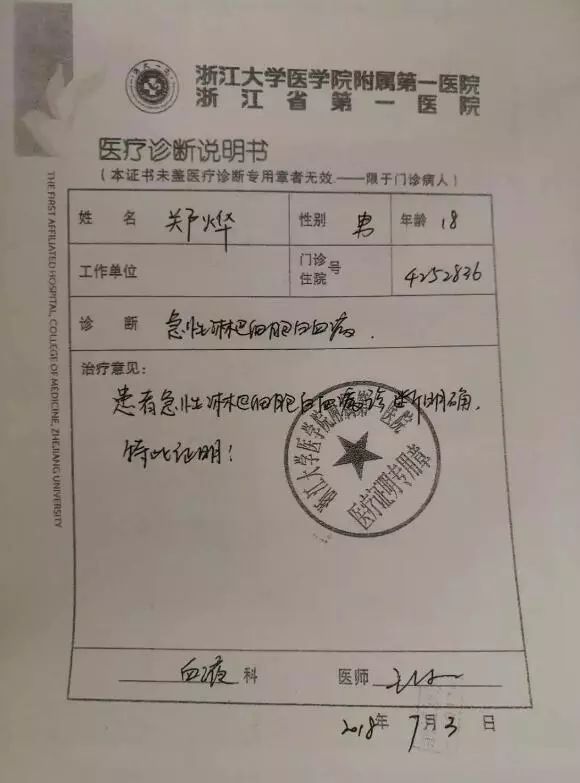 浙江大学医学院附属第一医院
浙江省第一医院
医疗诊断说明书
(本证书未盖医疗诊断专用章者无效.——限于门诊病人)
姓名 郑烨 性别 男 年龄 18
工作单位 门诊住院号 4252836
诊断 急性淋巴细胞白血病.
治疗意见:
患者急性淋巴细胞白血病诊断明确,
特此证明!
浙江大学医学院附属第一医院
医疗证明专用章
血液科 医师
2018年7月3日
THE FIRST AFFILIATED HOSPITAL, COLLEGE OF MEDICINE, ZHEJIANG UNIVERSITY